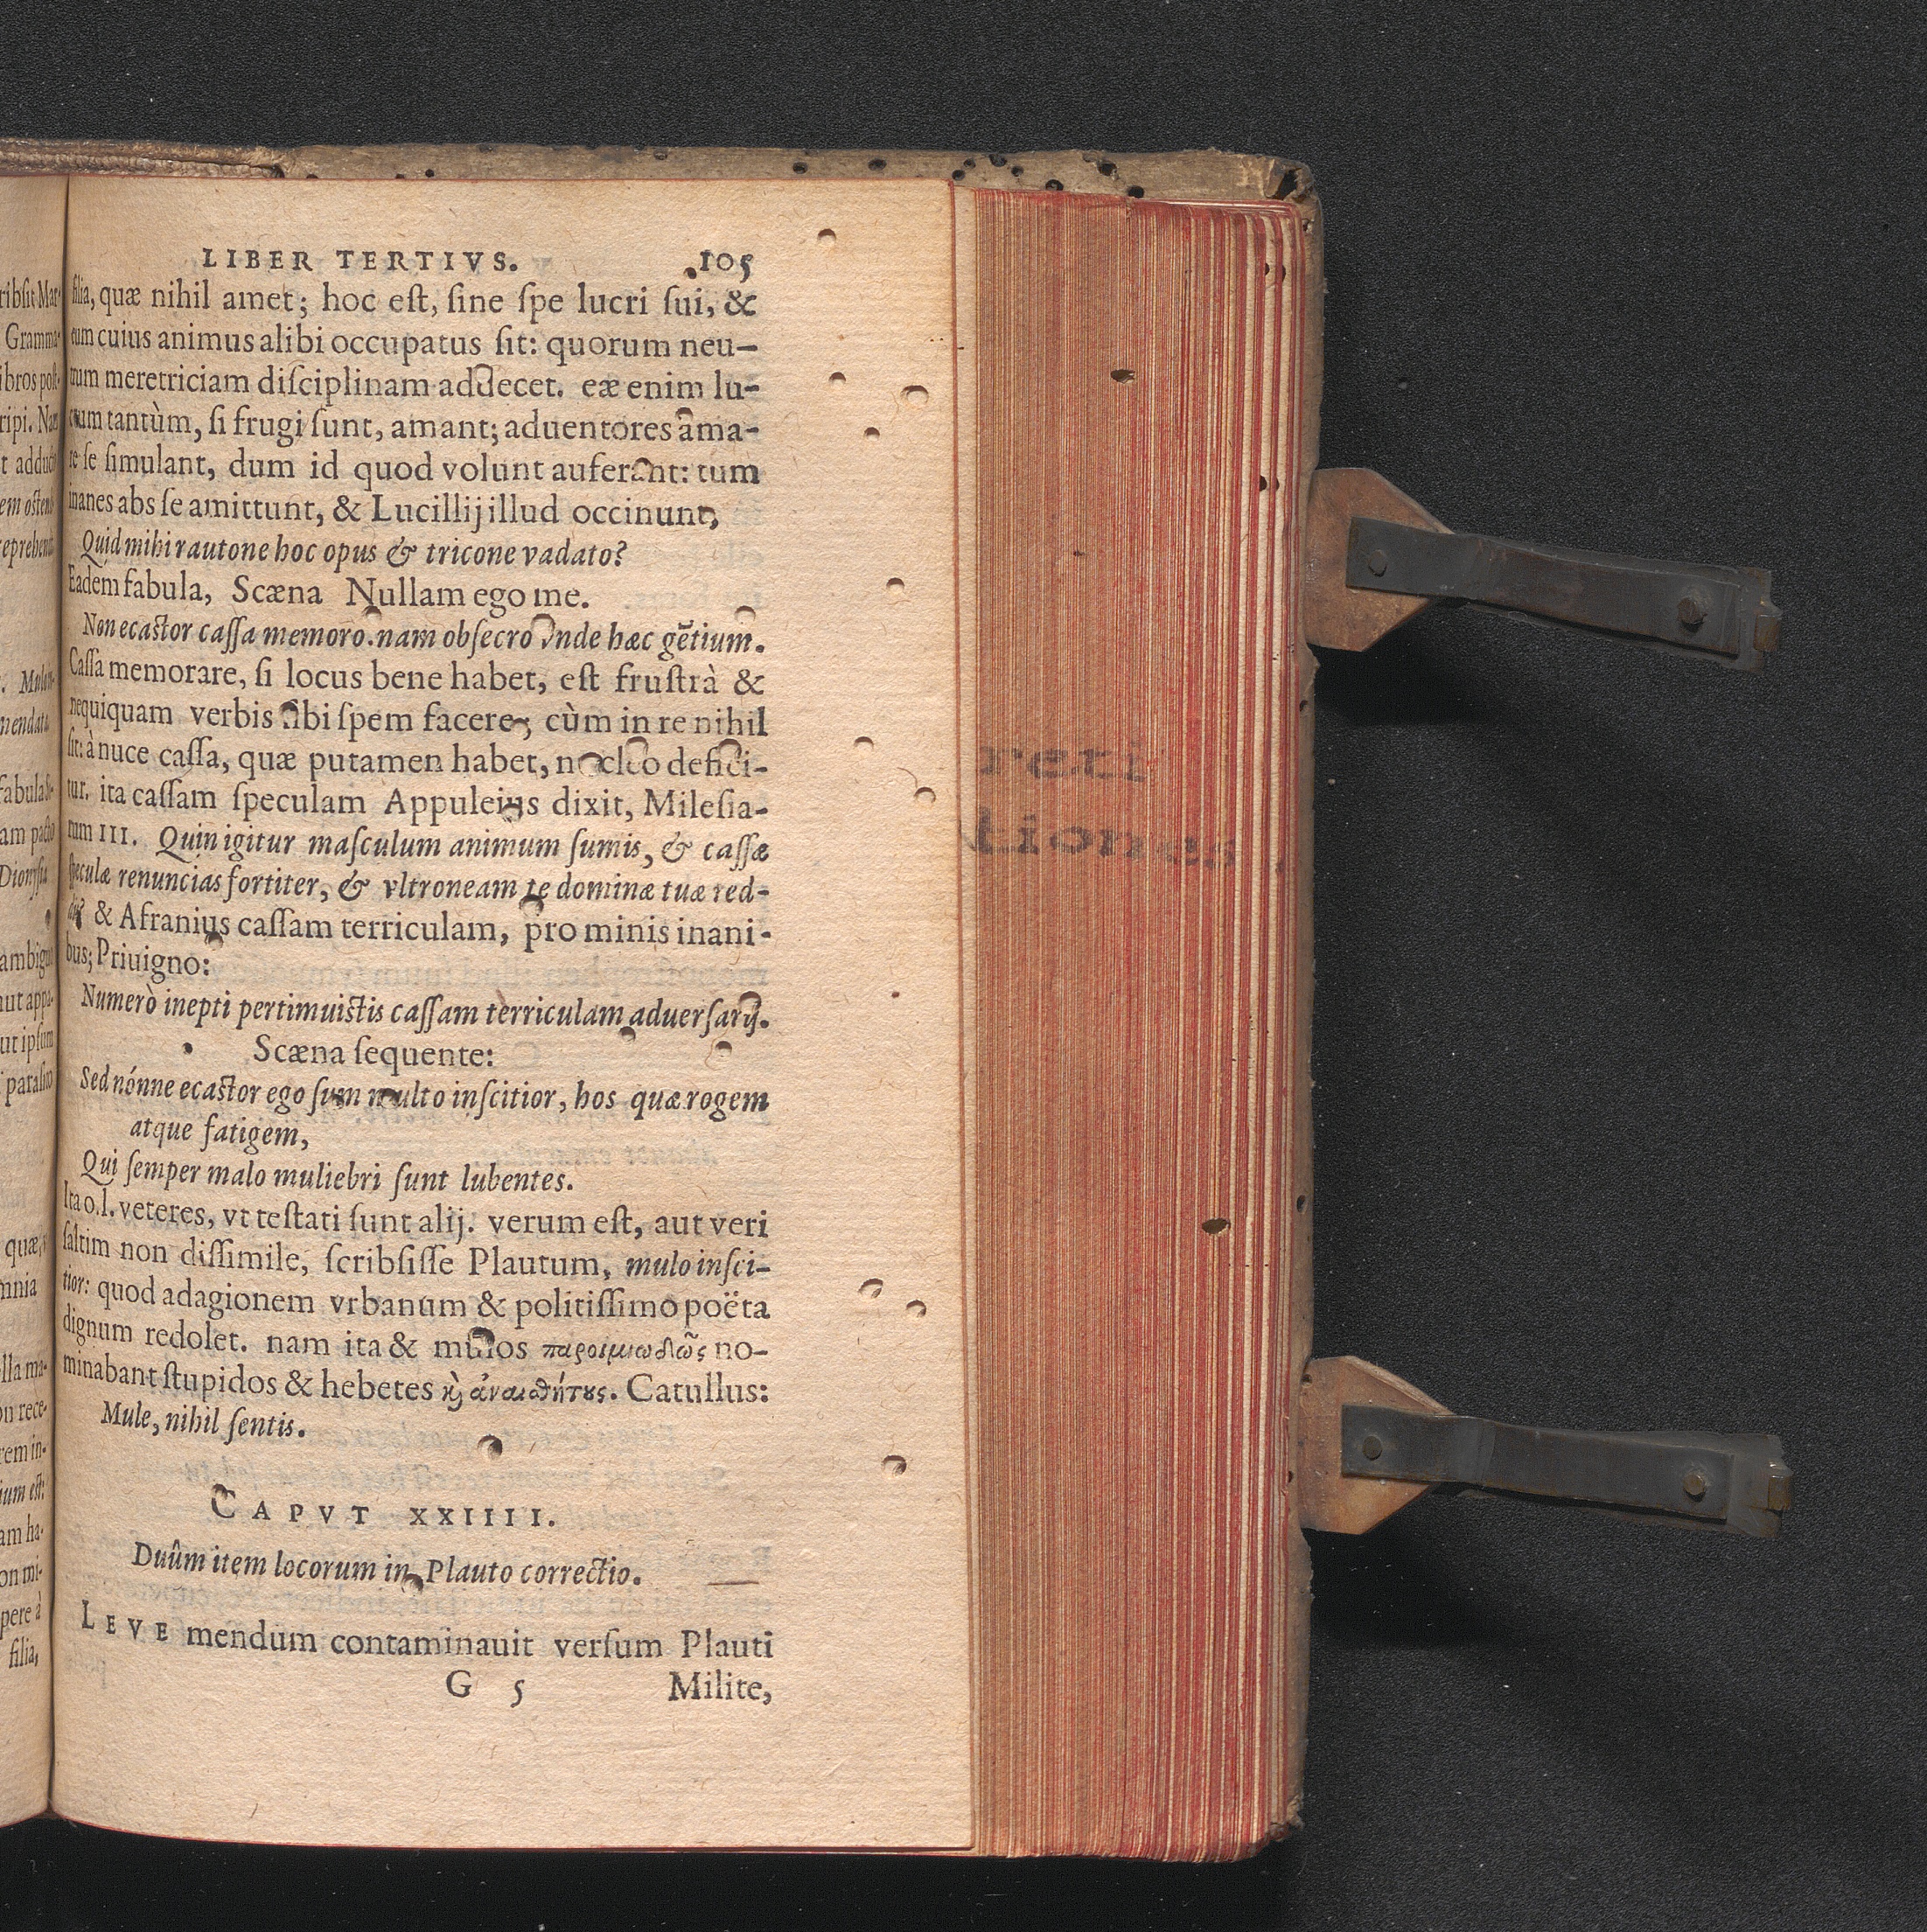 LIBER TERTIVS. 105
filia, quæ nihil amet; hoc est, ſine ſpe lucri ſui, &
eum cuius animus alibi occupatus ſit: quorum neu-
trum meretriciam diſciplinam addecet. eæ enim lu-
crum tantùm, ſi frugi ſunt, amant; aduentores ama-
re ſe ſimulant, dum id quod volunt auferant: tum
inanes abs ſe amittunt, & Lucillij illud occinunt,
Quid mihi rautone hoc opus & tricone vadato?
Eadem fabula, Scæna Nullam ego me.
Non ecastor caſſa memoro. nam obſecro vnde hæc gētium.
Caſſa memorare, ſi locus bene habet, est fruſtrà &
nequiquam verbis ſibi ſpem facere; cùm in re nihil
ſit: à nuce caſſa, quæ putamen habet, nucleo defici-
tur. ita caſſam ſpeculam Appuleius dixit, Mileſia-
rum III. Quin igitur maſculum animum ſumis, & caſſæ
ſpeculæ renuncias fortiter, & vltroneam te dominæ tuæ red-
dis? & Afranius caſſam terriculam, pro minis inani-
bus; Priuigno:
Numerò inepti pertimuistis caſſam terriculam aduerſarij.
Scæna ſequente:
Sed nónne ecastor ego ſum multo inſcitior, hos quæ rogem
atque fatigem,
Qui ſemper malo muliebri ſunt lubentes.
Ita o.l. veteres, vt teſtati ſunt alij. verum eſt, aut veri
ſaltim non diſſimile, ſcribſiſſe Plautum, mulo inſci-
tior: quod adagionem vrbanum & politiſſimo poëta
dignum redolet. nam ita & mulos παροιμιωδῶς no-
minabant ſtupidos & hebetes ϗ ἀναιϑήτȣς. Catullus:
Mule, nihil ſentis.
CAPVT XXIIII.
Duûm item locorum in Plauto correctio.
LEVE mendum contaminauit verſum Plauti
G 5 Milite,